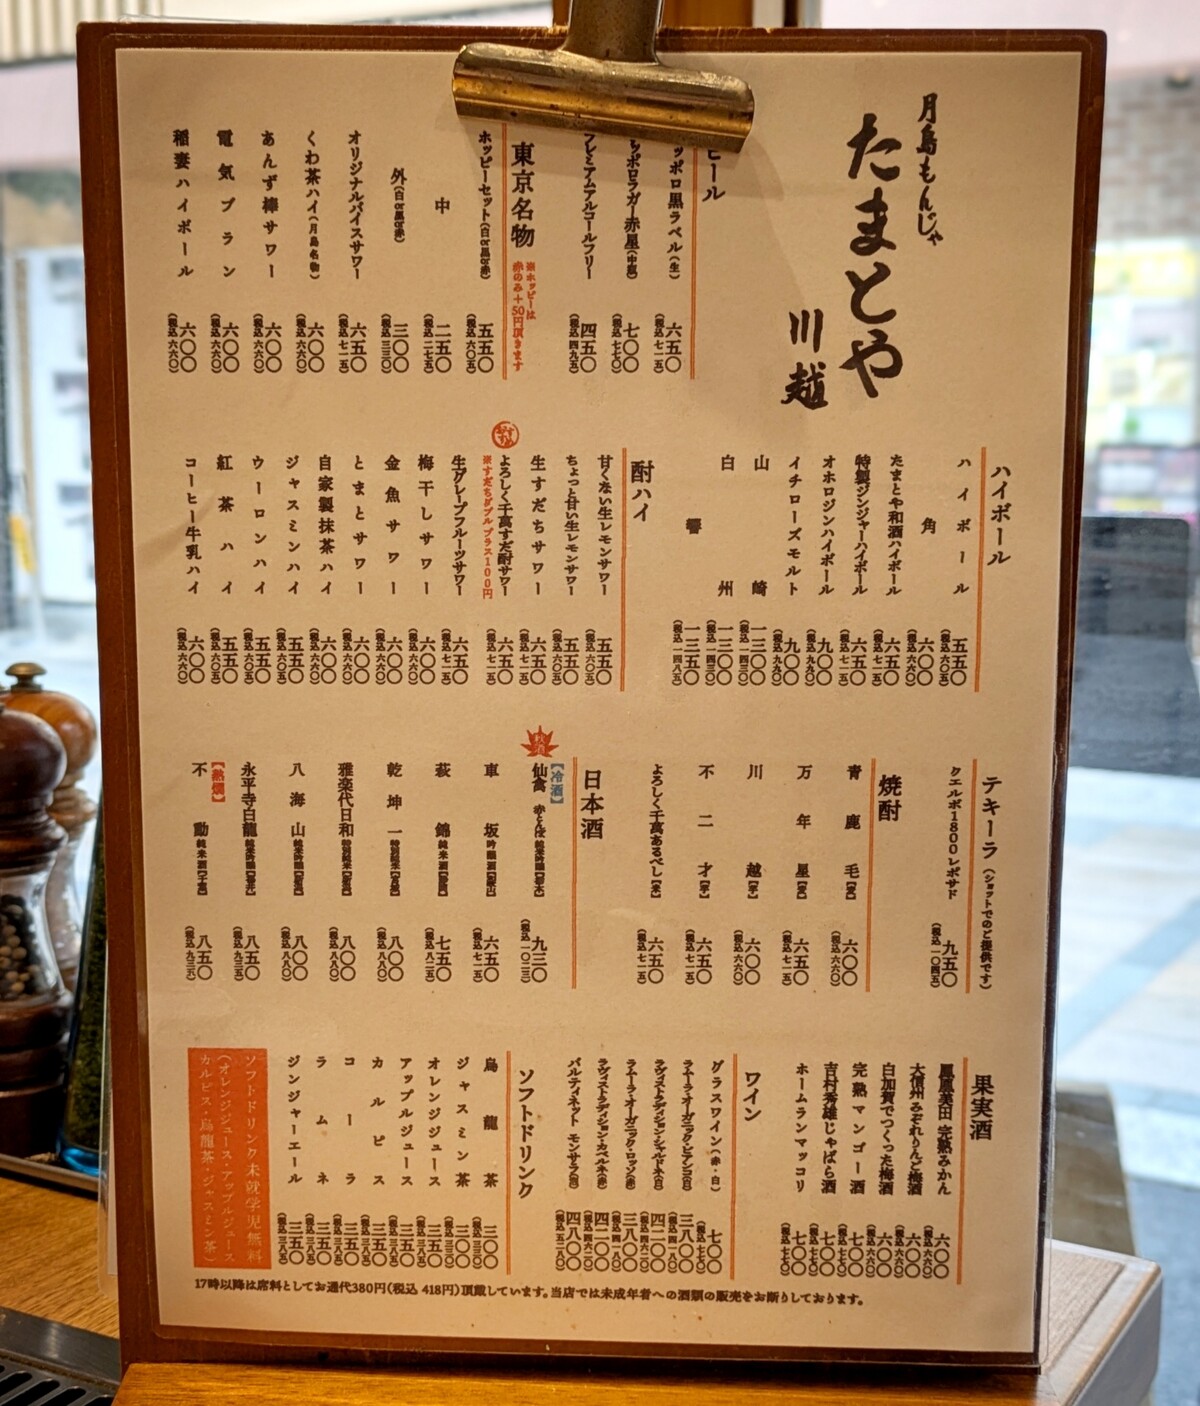 月島もんじゃ
たまとや
川越
ビール
サッポロ黒ラベル(生) 六五〇 (税込 七一五)
サッポロラガー赤星(中瓶) 七〇〇 (税込 七七〇)
プレミアムアルコールフリー 四五〇 (税込 四九五)
東京名物
※ホッピーは
赤のみ+50円頂きます
ホッピーセット(白or黒or赤) 五五〇 (税込 六〇五)
中 二五〇 (税込 二七五)
外(白or黒or赤) 三〇〇 (税込 三三〇)
オリジナルバイスサワー 六五〇 (税込 七一五)
くわ茶ハイ(月島名物) 六〇〇 (税込 六六〇)
あんず棒サワー 六〇〇 (税込 六六〇)
電気ブラン 六〇〇 (税込 六六〇)
稲妻ハイボール 六〇〇 (税込 六六〇)
ハイボール
ハイボール 五五〇 (税込 六〇五)
角 六〇〇 (税込 六六〇)
たまとや和酒ハイボール 六五〇 (税込 七一五)
特製ジンジャーハイボール 六五〇 (税込 七一五)
オホロジンハイボール 九〇〇 (税込 九九〇)
イチローズモルト 九〇〇 (税込 九九〇)
山崎 一三〇〇 (税込 一四三〇)
白州 一三〇〇 (税込 一四三〇)
響 一三五〇 (税込 一四八五)
酎ハイ
甘くない生レモンサワー 五五〇 (税込 六〇五)
ちょっと甘い生レモンサワー 五五〇 (税込 六〇五)
生すだちサワー 六五〇 (税込 七一五)
おすすめ
よろしく千萬すだ酎サワー 六五〇 (税込 七一五)
※すだちダブルプラス100円
生グレープフルーツサワー 六五〇 (税込 七一五)
梅干しサワー 六〇〇 (税込 六六〇)
金魚サワー 六〇〇 (税込 六六〇)
とまとサワー 六〇〇 (税込 六六〇)
自家製抹茶ハイ 六〇〇 (税込 六六〇)
ジャスミンハイ 五五〇 (税込 六〇五)
ウーロンハイ 五五〇 (税込 六〇五)
紅茶ハイ 五五〇 (税込 六〇五)
コーヒー牛乳ハイ 六〇〇 (税込 六六〇)
テキーラ(ショットでのご提供です)
クエルボ1800レポサド 九五〇 (税込 一〇四五)
焼酎
青鹿毛【麦】 六〇〇 (税込 六六〇)
万年星【麦】 六五〇 (税込 七一五)
川越【芋】 六〇〇 (税込 六六〇)
不二才【芋】 六五〇 (税込 七一五)
よろしく千萬あるべし【米】 六五〇 (税込 七一五)
日本酒
【冷酒】
秋酒
仙禽 赤とんぼ 純米吟醸【栃木】 九三〇 (税込 一〇二三)
車坂 吟醸酒【歌山】 六五〇 (税込 七一五)
萩錦 純米酒【静岡】 七五〇 (税込 八二五)
乾坤一 特別純米【宮城】 八〇〇 (税込 八八〇)
雅楽代日和 特別純米【新潟】 八〇〇 (税込 八八〇)
八海山 純米吟醸【新潟】 八〇〇 (税込 八八〇)
永平寺白龍 純米吟醸【福井】 八五〇 (税込 九三五)
【熱燗】
不動 純米酒【千葉】 八五〇 (税込 九三五)
果実酒
鳳凰美田 完熟みかん 六〇〇 (税込 六六〇)
大信州みぞれりんご梅酒 六〇〇 (税込 六六〇)
白加賀でつくった梅酒 六〇〇 (税込 六六〇)
完熟マンゴー酒 七〇〇 (税込 七七〇)
吉村秀雄じゃばら酒 七〇〇 (税込 七七〇)
ホームランマッコリ 七〇〇 (税込 七七〇)
ワイン
グラスワイン(赤・白) 七〇〇 (税込 七七〇)
ラムーラ・オーガニック・ビアンコ(白) 三八〇〇 (税込 四一八〇)
ラヴィストラディション・シャルドネ(白) 四二〇〇 (税込 四六二〇)
ラムーラ・オーガニック・ロッソ(赤) 三八〇〇 (税込 四一八〇)
ラヴィストラディション・カベルネ(赤) 四二〇〇 (税込 四六二〇)
バルティネット モンサラ(泡) 四八〇〇 (税込 五二八〇)
ソフトドリンク
烏龍茶 三〇〇 (税込 三三〇)
ジャスミン茶 三〇〇 (税込 三三〇)
オレンジジュース 三五〇 (税込 三八五)
アップルジュース 三五〇 (税込 三八五)
カルピス 三五〇 (税込 三八五)
コーラ 三五〇 (税込 三八五)
ラムネ 三五〇 (税込 三八五)
ジンジャーエール 三五〇 (税込 三八五)
ソフトドリンク未就学児無料
(オレンジジュース・アップルジュース
カルピス・烏龍茶・ジャスミン茶)
17時以降は席料としてお通代380円(税込 418円)頂戴しています。当店では未成年者への酒類の販売をお断りしております。